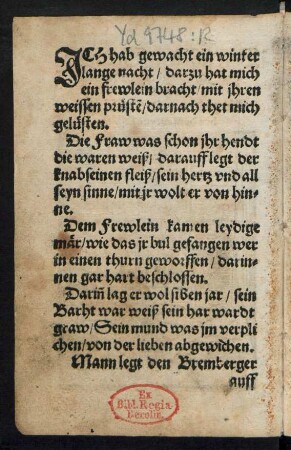 Yd 9748 : R
ICh hab gewacht ein winter
lange nacht / darzu hat mich
ein frewlein bracht / mit jhren
weissen prüstē / darnach thet mich
gelüsten.
Die Fraw was schon jhr hendt
die waren weiß / darauff legt der
knab seinen fleiß / sein hertz vnd all
seyn sinne / mit jr wolt er von hin-
ne.
Dem Frewlein kamen leydige
mär / wie das jr bul gefangen wer
in einen thurn geworffen / darin-
nen gar hart beschlossen.
Dariñ lag er wol siben jar / sein
Barht war weiß sein har wardt
graw / Sein mund was jm verpli
chen / von der lieben abgewichen.
Mann legt den Bremberger
auff
Ex
Bibl. Regia
Berolin.